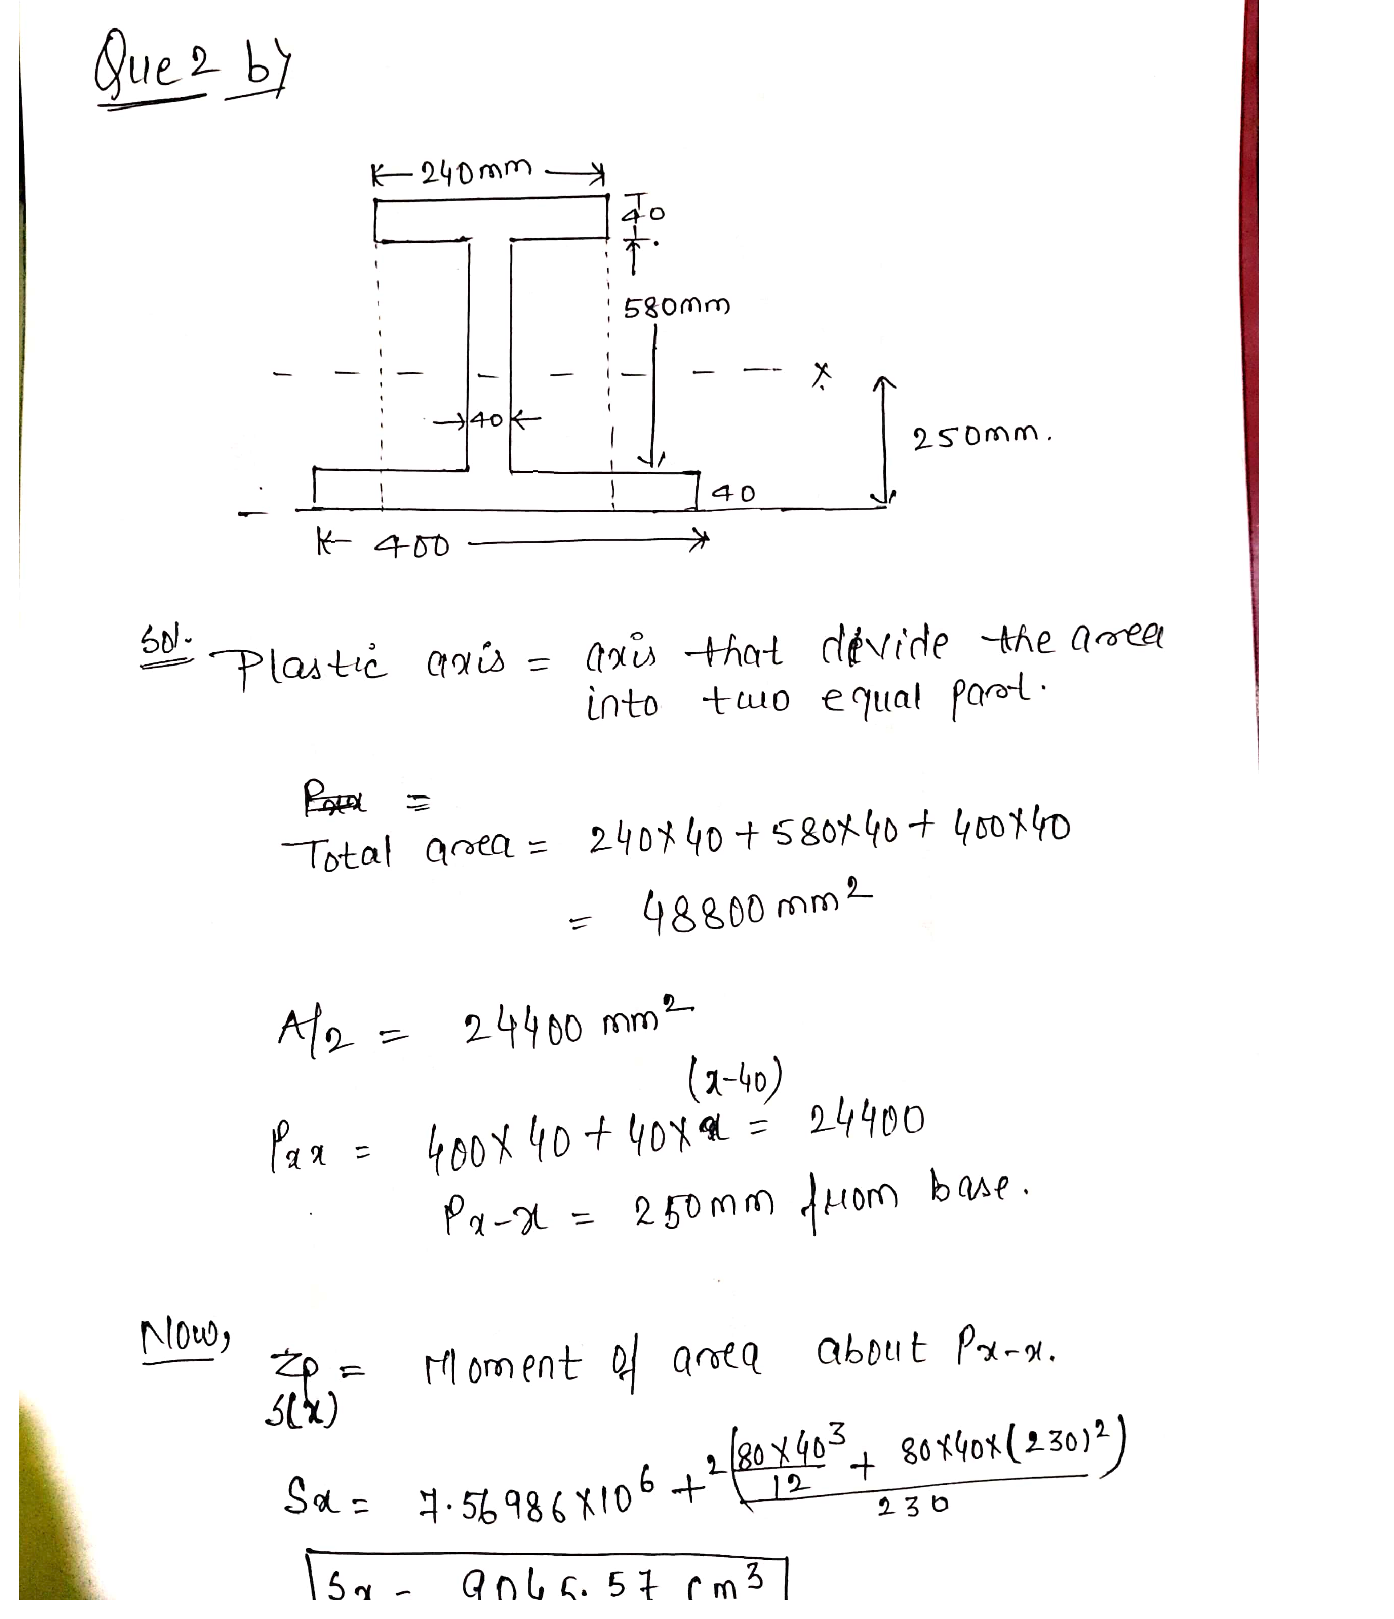 Que 2 b)
240mm
40
580mm
x
40
250mm.
40
400
Sol.
Plastic axis = axis that divide the area
into two equal part.
=
Total area = 240×40 + 580×40 + 400×40
= 48800 mm²
A/2 = 24400 mm²
(x-40)
Pxx = 400×40 + 40× = 24400
Px-x = 250mm from base.
Now,
Zp = Moment of area about Px-x.
S(x)
Sx = 7.56986×10⁶ + 2(80×40³/12 + 80×40×(230)²)/230
Sx = 9045.57 cm³